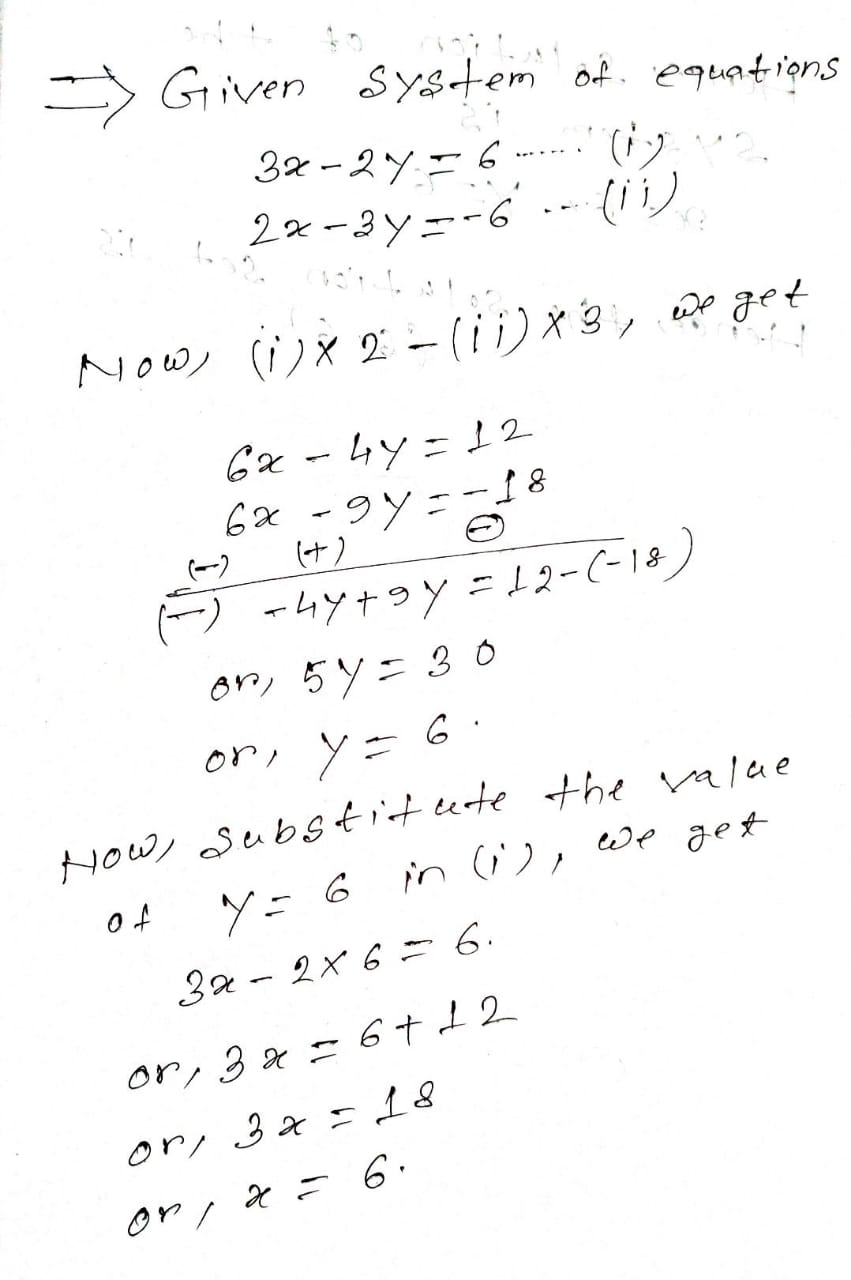 ⇒ Given system of equations
3x - 2y = 6 ...... (i)
2x - 3y = -6 ... (ii)
Now, (i) x 2 - (ii) x 3, we get
6x - 4y = 12
6x - 9y = -18
(-) (+) ⊖
(-) -4y + 9y = 12-(-18)
or, 5y = 30
or, y = 6.
Now, substitute the value
of y = 6 in (i), we get
3x - 2x6 = 6.
or, 3x = 6+12
or, 3x = 18
or, x = 6.